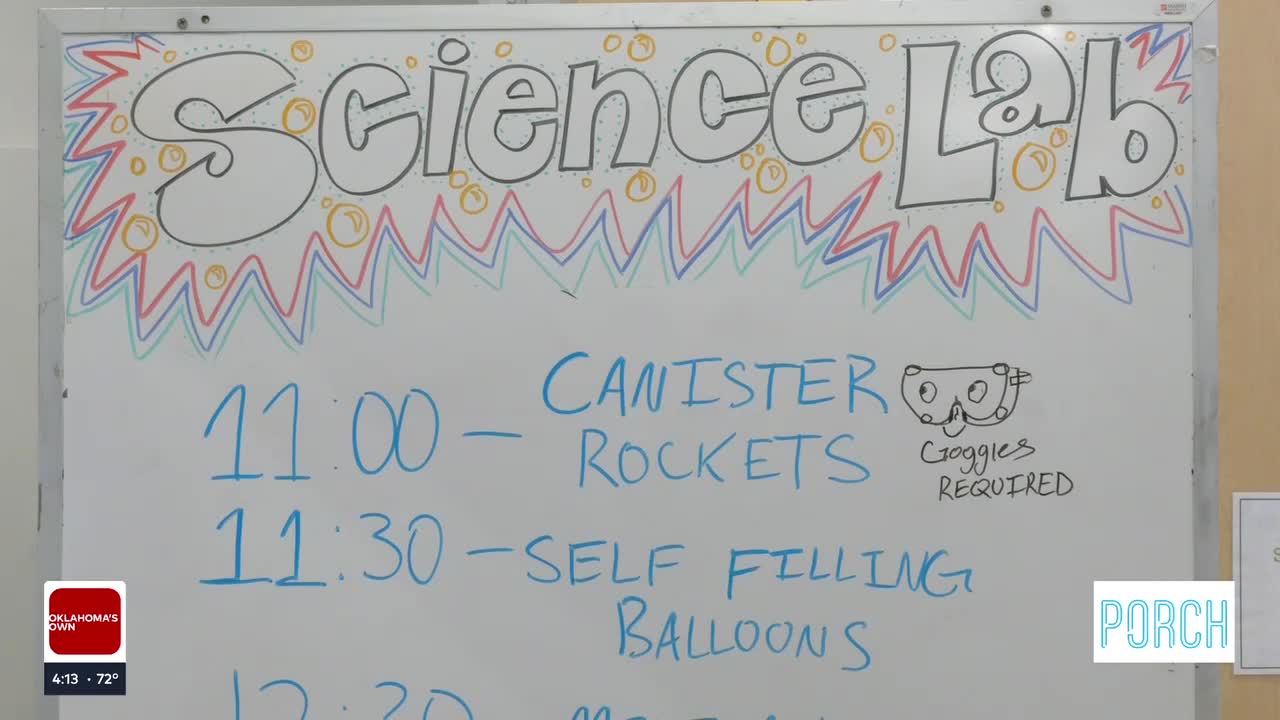 Science Lab
11:00 — CANISTER
ROCKETS
Goggles
REQUIRED
11:30 — SELF FILLING
BALLOONS
12:30
OKLAHOMA'S
OWN
4:13 · 72°
PORCH